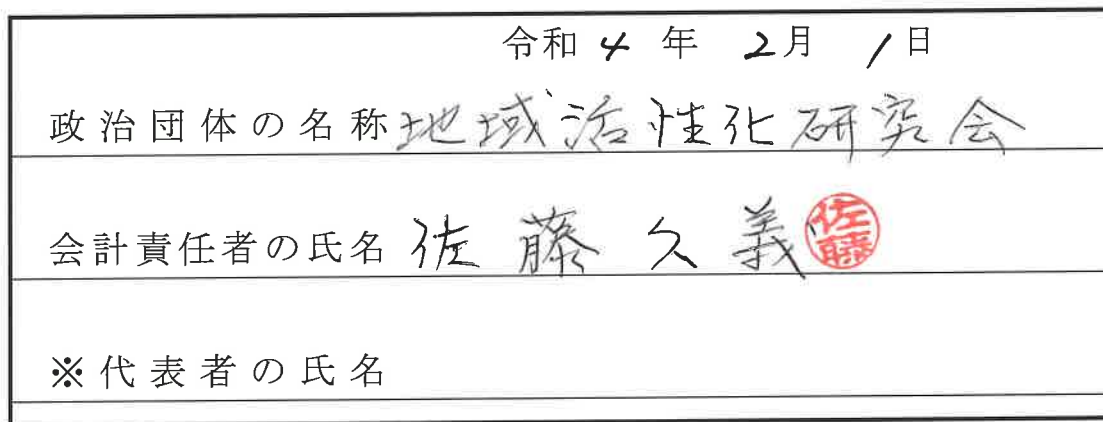 令和4年 2月 1日
政治団体の名称 地域活性化研究会
会計責任者の氏名 佐藤久義 佐藤
※代表者の氏名